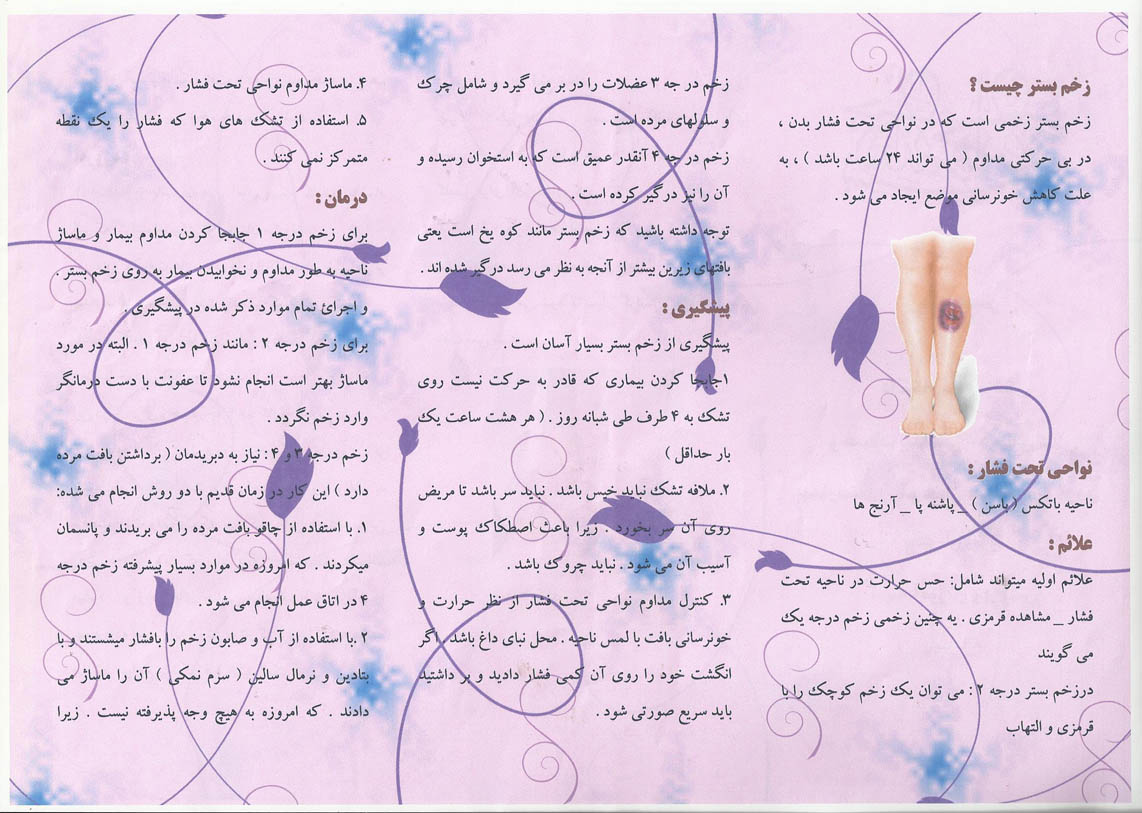 زخم بستر چیست ؟
زخم بستر زخمی است که در نواحی تحت فشار بدن ،
در بی حرکتی مداوم ( می تواند ۲۴ ساعت باشد ) ، به
علت کاهش خونرسانی موضع ایجاد می شود .
نواحی تحت فشار :
ناحیه باتکس ( باسن ) _ پاشنه پا _ آرنج ها
علائم :
علائم اولیه میتواند شامل: حس حرارت در ناحیه تحت
فشار _ مشاهده قرمزی . یه چنین زخمی زخم درجه یک
می گویند
درزخم بستر درجه ۲ : می توان یک زخم کوچک را با
قرمزی و التهاب
زخم درجه ۳ عضلات را در بر می گیرد و شامل چرک
و سلولهای مرده است .
زخم درجه ۴ آنقدر عمیق است که به استخوان رسیده و
آن را نیز درگیر کرده است .
توجه داشته باشید که زخم بستر مانند کوه یخ است یعنی
بافتهای زیرین بیشتر از آنچه به نظر می رسد درگیر شده اند .
پیشگیری :
پیشگیری از زخم بستر بسیار آسان است .
۱جابجا کردن بیماری که قادر به حرکت نیست روی
تشک به ۴ طرف طی شبانه روز . ( هر هشت ساعت یک
بار حداقل )
۲. ملافه تشک نباید خیس باشد . نباید سر باشد تا مریض
روی آن سر بخورد . زیرا باعث اصطکاک پوست و
آسیب آن می شود . نباید چروک باشد .
۳. کنترل مداوم نواحی تحت فشار از نظر حرارت و
خونرسانی بافت با لمس ناحیه . محل نبای داغ باشد . اگر
انگشت خود را روی آن کمی فشار دادید و بر داشتید
باید سریع صورتی شود .
۴. ماساژ مداوم نواحی تحت فشار .
۵. استفاده از تشک های هوا که فشار را یک نقطه
متمرکز نمی کنند .
درمان :
برای زخم درجه ۱ جابجا کردن مداوم بیمار و ماساژ
ناحیه به طور مداوم و نخوابیدن بیمار به روی زخم بستر .
و اجرائ تمام موارد ذکر شده در پیشگیری .
برای زخم درجه ۲ : مانند زخم درجه ۱ . البته در مورد
ماساژ بهتر است انجام نشود تا عفونت با دست درمانگر
وارد زخم نگردد .
زخم درجه ۳ و ۴ : نیاز به دبریدمان ( برداشتن بافت مرده
دارد ) این کار در زمان قدیم با دو روش انجام می شده:
۱. با استفاده از چاقو بافت مرده را می بریدند و پانسمان
میکردند . که امروزه در موارد بسیار پیشرفته زخم درجه
۴ در اتاق عمل انجام می شود .
۲ .با استفاده از آب و صابون زخم را بافشار میشستند و با
بتادین و نرمال سالین ( سرم نمکی ) آن را ماساژ می
دادند . که امروزه به هیچ وجه پذیرفته نیست . زیرا